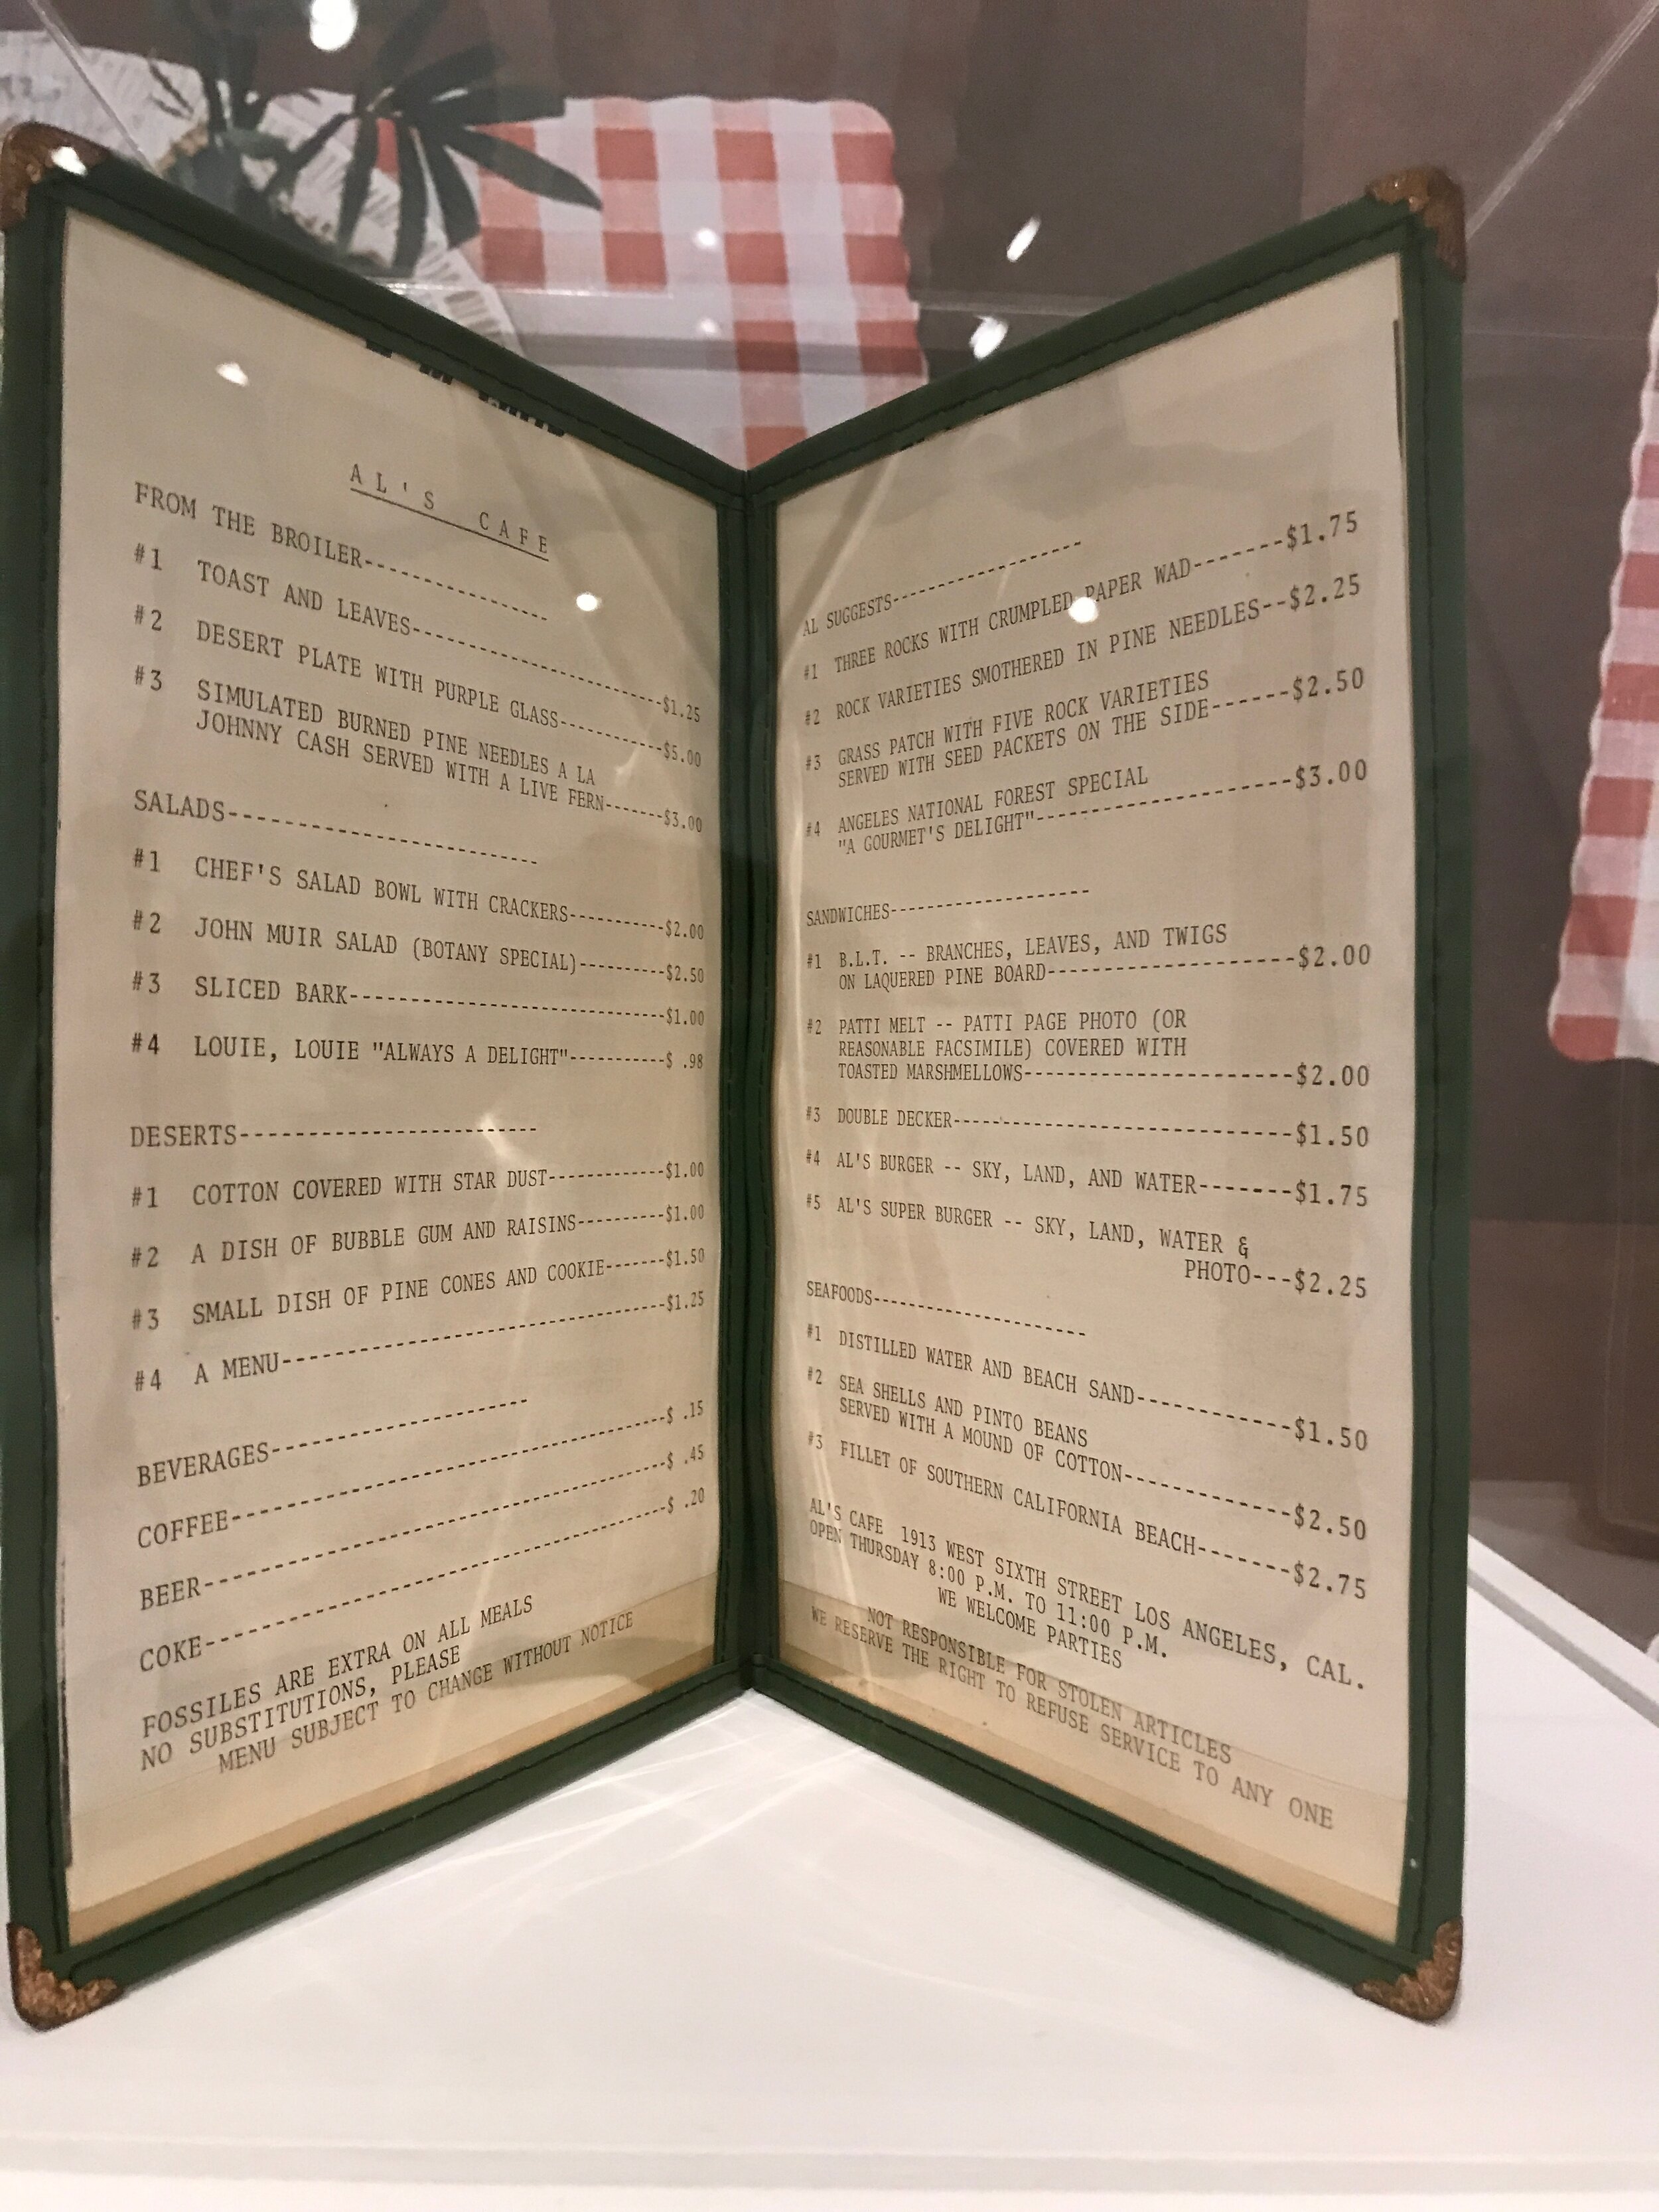 AL'S CAFE
FROM THE BROILER--------------
#1 TOAST AND LEAVES--------------------$1.25
#2 DESERT PLATE WITH PURPLE GLASS---------$5.00
#3 SIMULATED BURNED PINE NEEDLES A LA
JOHNNY CASH SERVED WITH A LIVE FERN------$3.00
SALADS-----------------------
#1 CHEF'S SALAD BOWL WITH CRACKERS---------$2.00
#2 JOHN MUIR SALAD (BOTANY SPECIAL)--------$2.50
#3 SLICED BARK----------------------------$1.00
#4 LOUIE, LOUIE "ALWAYS A DELIGHT"---------$ .98
DESERTS----------------------
#1 COTTON COVERED WITH STAR DUST----------$1.00
#2 A DISH OF BUBBLE GUM AND RAISINS--------$1.00
#3 SMALL DISH OF PINE CONES AND COOKIE-----$1.50
#4 A MENU--------------------------------$1.25
BEVERAGES--------------------
COFFEE-----------------------------------$ .15
BEER-------------------------------------$ .45
COKE-------------------------------------$ .20
FOSSILES ARE EXTRA ON ALL MEALS
NO SUBSTITUTIONS, PLEASE
MENU SUBJECT TO CHANGE WITHOUT NOTICE
AL SUGGESTS--------------------
#1 THREE ROCKS WITH CRUMPLED PAPER WAD-------$1.75
#2 ROCK VARIETIES SMOTHERED IN PINE NEEDLES--$2.25
#3 GRASS PATCH WITH FIVE ROCK VARIETIES
SERVED WITH SEED PACKETS ON THE SIDE------$2.50
#4 ANGELES NATIONAL FOREST SPECIAL
"A GOURMET'S DELIGHT"--------------------$3.00
SANDWICHES--------------------
#1 B.L.T. -- BRANCHES, LEAVES, AND TWIGS
ON LAQUERED PINE BOARD-------------------$2.00
#2 PATTI MELT -- PATTI PAGE PHOTO (OR
REASONABLE FACSIMILE) COVERED WITH
TOASTED MARSHMELLOWS---------------------$2.00
#3 DOUBLE DECKER---------------------------$1.50
#4 AL'S BURGER -- SKY, LAND, AND WATER-------$1.75
#5 AL'S SUPER BURGER -- SKY, LAND, WATER &
PHOTO---$2.25
SEAFOODS---------------------
#1 DISTILLED WATER AND BEACH SAND----------$1.50
#2 SEA SHELLS AND PINTO BEANS
SERVED WITH A MOUND OF COTTON-----------$2.50
#3 FILLET OF SOUTHERN CALIFORNIA BEACH-------$2.75
AL'S CAFE 1913 WEST SIXTH STREET LOS ANGELES, CAL.
OPEN THURSDAY 8:00 P.M. TO 11:00 P.M.
WE WELCOME PARTIES
NOT RESPONSIBLE FOR STOLEN ARTICLES
WE RESERVE THE RIGHT TO REFUSE SERVICE TO ANY ONE